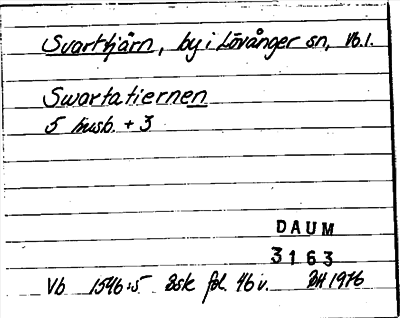 Svarttjärn, by i Lövånger sn, Vb.l.
Swartatiernen
5 husb. + 3
DAUM
3163
Vb 1546:5 Bsk fol. 46 v. BH 1976